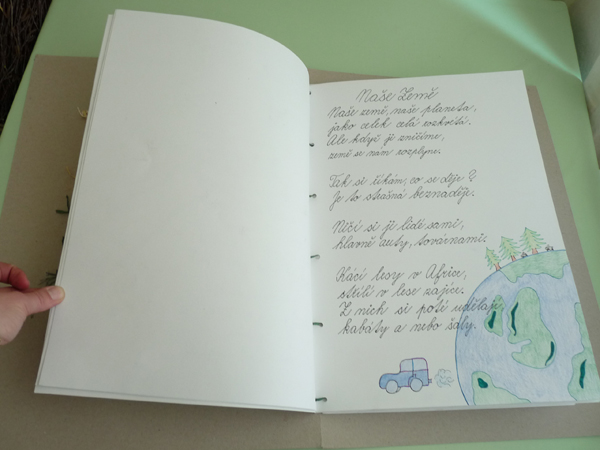 Naše Země
Naše země, naše planeta,
jako celek celá rozkvetá.
Ale když ji zničíme,
země se nám rozplyne.
Tak si říkám, co se děje?
Je to strašná beznaděje.
Ničí si ji lidé sami,
hlavně auty, továrnami.
Kácí lesy v Africe,
střílí v lese zajíce.
Z nich si poté udělají
kabáty a nebo šály.